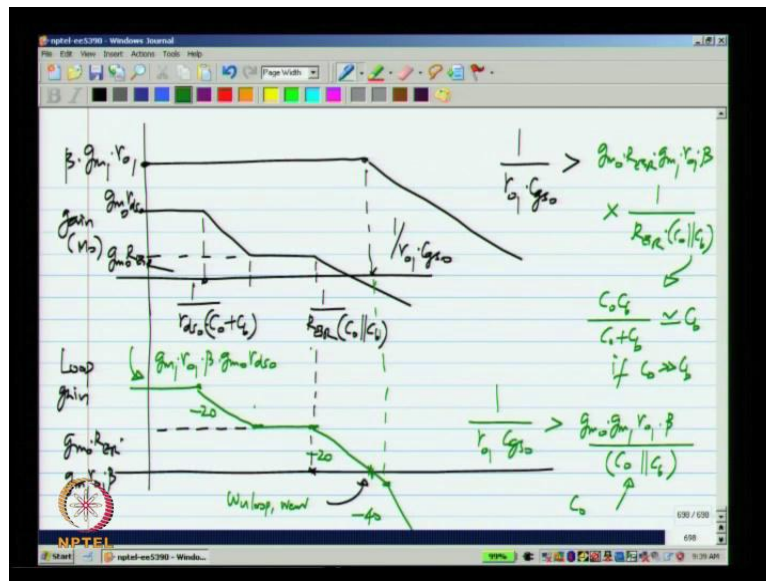 nptel-ee5390 - Windows Journal
File Edit View Insert Actions Tools Help
Page Width
B I
β·gm1·ro1
gain
(Mo)
gmo rdso
gmo RESR
1/ro1·Cgso
1
rdso(Co+Cb)
1
RESR(Co||Cb)
1
ro1·Cgso
>
gmo·RESR·gm1·ro1·β
× 1
RESR·(Co||Cb)
CoCb
Co+Cb
≃ Cb
if Co>>Cb
Loop
gain
gm1·ro1·β·gmo rdso
-20
gmo·RESR·
gm1·ro1·β
+20
ωu,loop, new
-40
1
ro1 Cgso
>
gmo·gm1 ro1·β
(Co||Cb)
Co
NPTEL
698 / 698
698
Start
nptel-ee5390 - Windo...
99%
9:39 AM